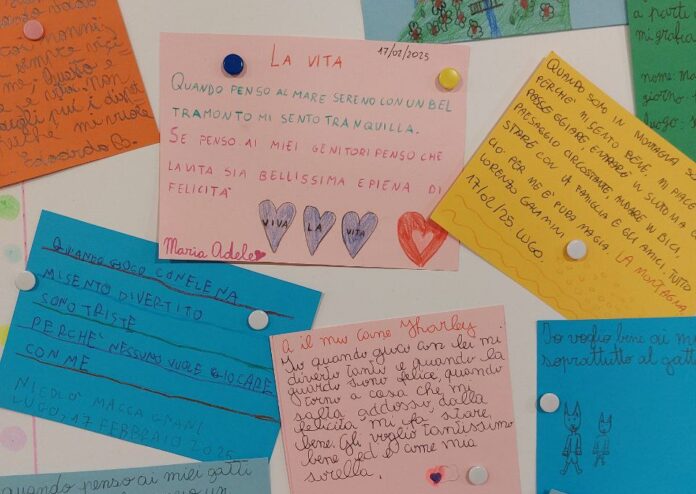 cosi nonni,
sempre vici
me, questo e
e voi non
Edoardo B.
LA VITA
17/02/2025
QUANDO PENSO AL MARE SERENO CON UN BEL
TRAMONTO MI SENTO TRANQUILLA.
SE PENSO AI MIEI GENITORI PENSO CHE
LA VITA SIA BELLISSIMA E PIENA DI
FELICITÀ
VIVA
LA
VITA
Maria Adele
a partu
mi grafica
nome: ma
giorno
luogo:
QUANDO SONO IN MONTAGNA SO
PERCHÉ MI SENTO BENE, MI PIACE
PASSEGGIARE, ENTRARE IN SINTONIA CO
PAESAGGIO CIRCOSTANTE, ANDARE IN BICI,
STARE CON LA FAMIGLIA E GLI AMICI, TUTTO
CIÒ PER ME È PURA MAGIA. LA MONTAGNA
LORENZO GALAMINI
17/02/25 LUGO.
QUANDO GIOCO CON ELENA
MI SENTO DIVERTITO
SONO TRISTE
PERCHE' NESSUNO VUOLE GIOCARE
CON ME
NICOLÒ MACCAGNANI
LUGO, 17 FEBBRAIO 2025
A il mio cane Sharley
Io quando gioco con lei mi
diverto tanto e quando la
guardo sono felice, quando
torno a casa che mi
salta addosso dalla
felicità mi fa stare
bene. Gli voglio tantissimo
bene ed è come mia
sorella.
Io voglio bene ai mi
soprattutto al gatt
quando penso ai miei gatti